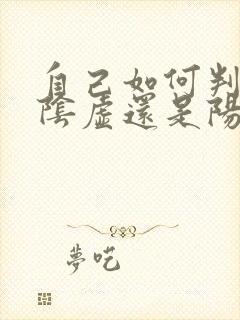 自己如何判
陰虛還是陽
夢吃